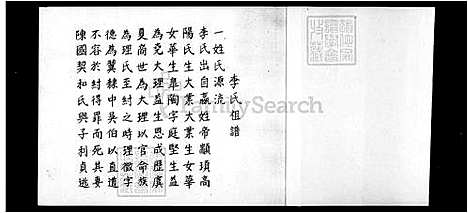 李氏祖譜
一姓氏源流
李氏出自嬴姓帝顓頊高
陽氏生大業大業生女華
女華生皋陶字庭堅生益
為堯大理益生恩成歷虞
夏商世為大理以官命族
為理氏至紂之時理徵字
德為翼隸中吳伯以直道
不容於紂得罪而死其妻
陳國契和氏與子利貞逃
FamilySearch